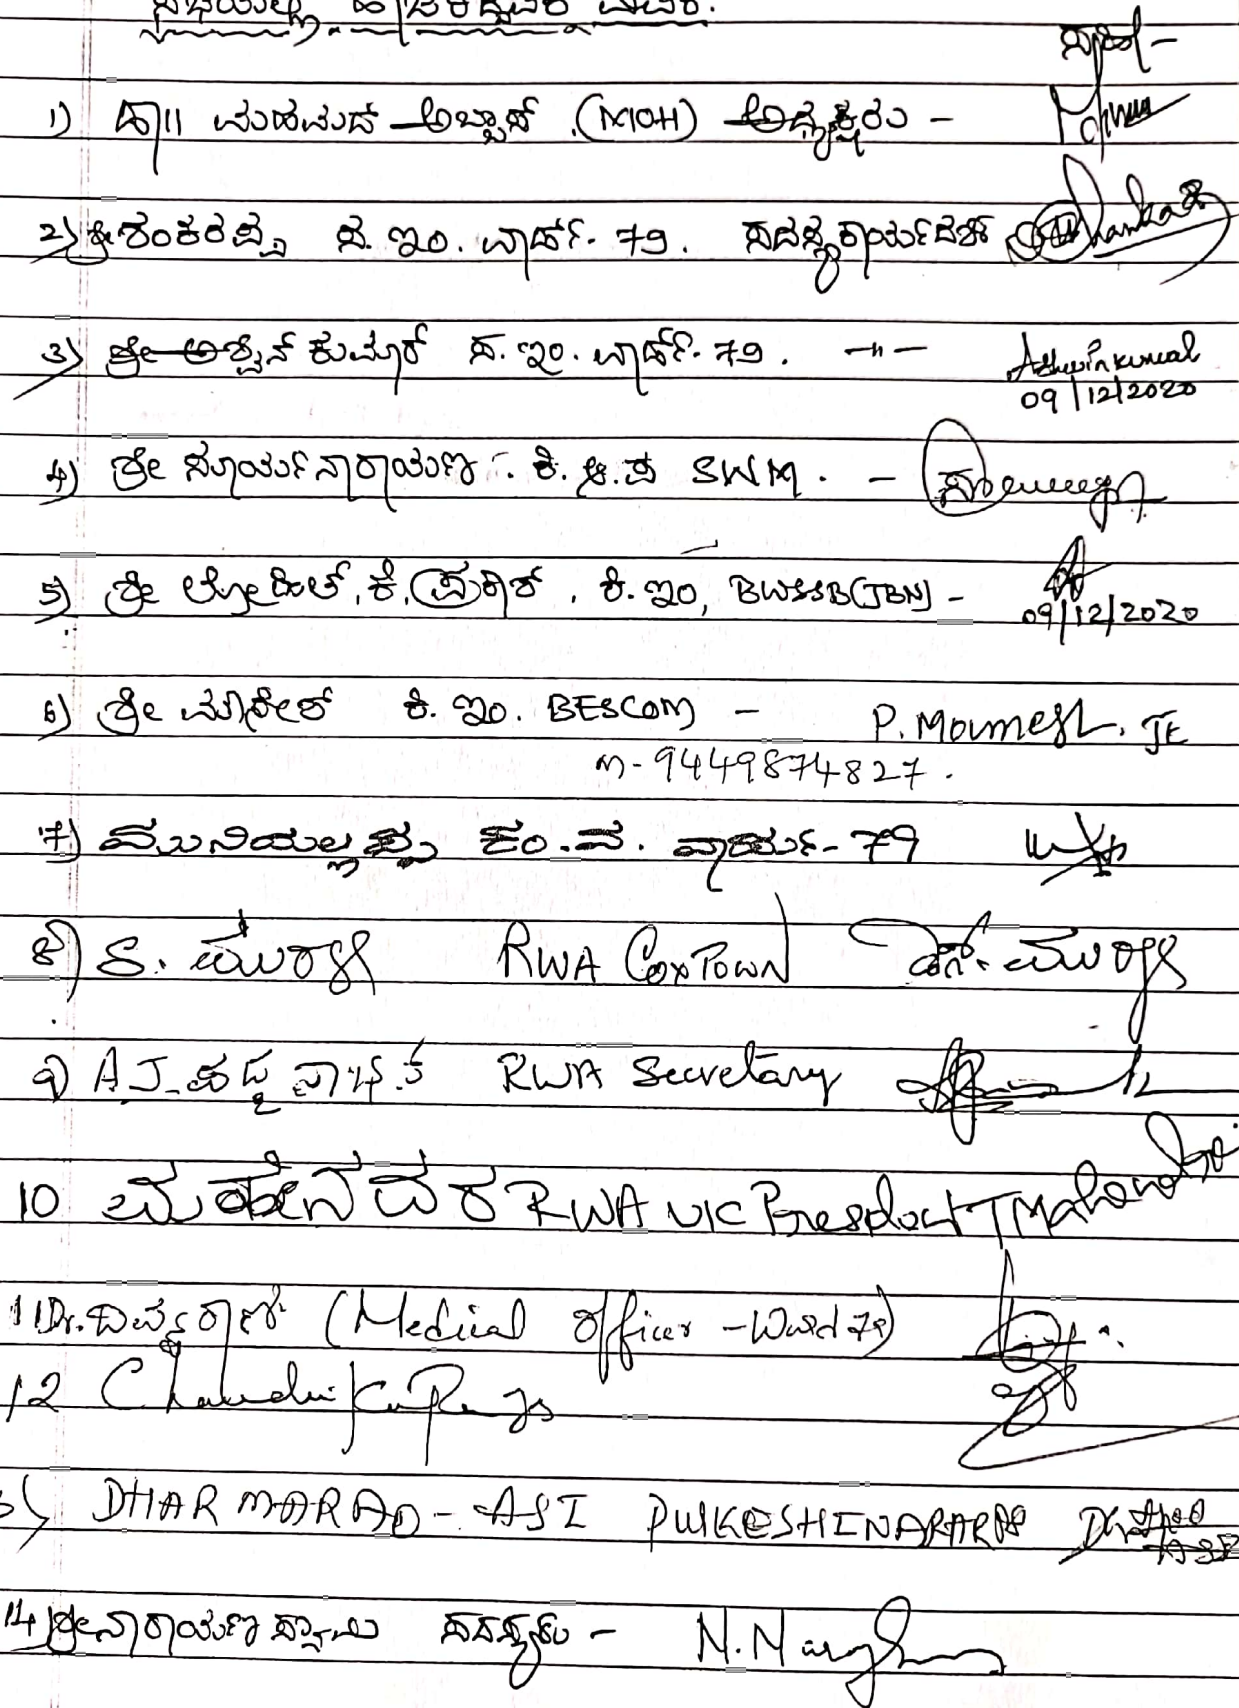 ಸಭೆಯಲ್ಲಿ ಹಾಜರಿದ್ದವರ ವಿವರ.
ಸಹಿ -
1) ಡಾ|| ಮಹಮದ್ ಅಬ್ಬಾಸ್ (MOH) ಅಧ್ಯಕ್ಷರು -
2) ಶ್ರೀ ಶಂಕರಪ್ಪ ಸ. ಇಂ. ವಾರ್ಡ್. 79. ಸದಸ್ಯ ಕಾರ್ಯದರ್ಶಿ Shankar
3) ಶ್ರೀ ಅಶ್ವಿನ್ ಕುಮಾರ್ ಸ. ಇಂ. ವಾರ್ಡ್. 79. -"- Ashwin kumar
09/12/2020
4) ಶ್ರೀ ಸೂರ್ಯನಾರಾಯಣ. ಕಿ. ಆ. ಪ SWM. -
5) ಶ್ರೀ ಲೋಹಿತ್. ಕೆ. ಪ್ರಕಾಶ್. ಕಿ. ಇಂ, BWSSB (JBN) -
09/12/2020
6) ಶ್ರೀ ಮೌನೇಶ್ ಕಿ. ಇಂ. BESCOM - P. Mounesh. JE
m - 9449874827.
7) ಮುನಿಯಲ್ಲಪ್ಪ ಕಂ. ವ. ವಾರ್ಡ್ - 79
8) S. ಮುರಳಿ RWA Cox Town ಎಸ್. ಮುರಳಿ
9) A.J. ಪದ್ಮನಾಭನ್ RWA Secretary
10 RWA VIC President T Mahendra
11 Dr. ದಿವ್ಯ (Medical Officer - Ward 79)
12
DHARMARAO - ASI PULKESHINAGAR PS
14 ಶ್ರೀ ನಾರಾಯಣಸ್ವಾಮಿ ಸದಸ್ಯರು -